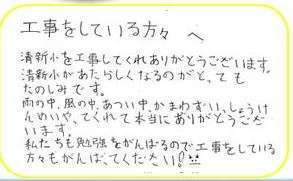 工事をしている方々 へ
清新小を工事してくれありがとうございます。
清新小があたらしくなるのがとっても
たのしみです。
雨の中、風の中、あつい中、かまわずいっしょうけ
んめいやってくれて本当にありがとうござい
ます。
私たちも勉強をがんばるので工事をしている
方々もがんばってください!